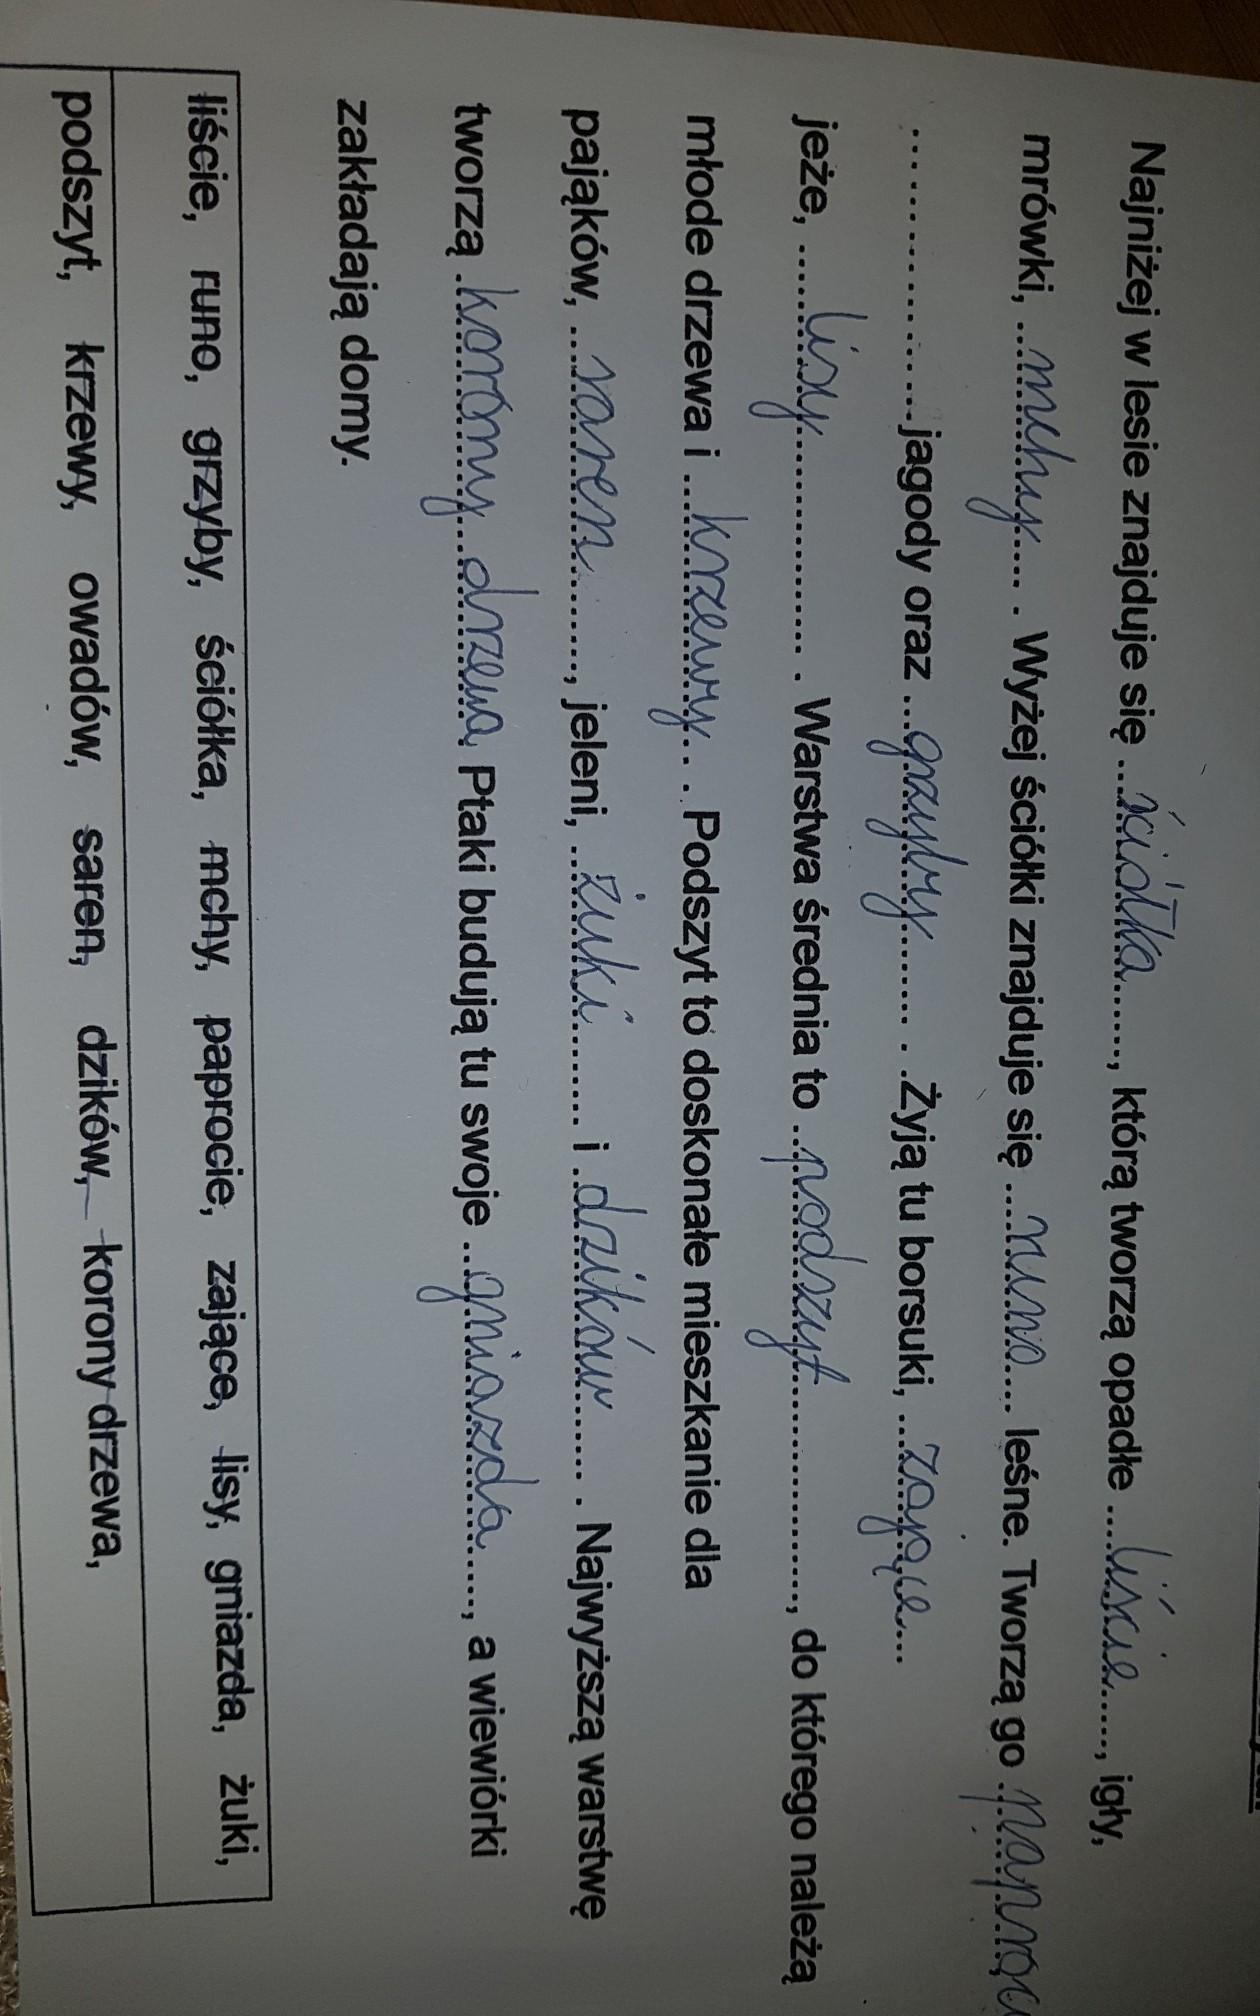 Najniżej w lesie znajduje się ...ściółka......, którą tworzą opadłe ....liście....., igły,
mrówki, ...mchy.... . Wyżej ściółki znajduje się ....runo.... leśne. Tworzą go
................jagody oraz ...grzyby....... . .Żyją tu borsuki, ...zające...
jeże, .....lisy................ . Warstwa średnia to ..podszyt................, do którego należą
młode drzewa i ...krzewy.. . Podszyt to doskonałe mieszkanie dla
pająków, ....saren........, jeleni, ...żuki......... i ..dzików....... . Najwyższą warstwę
tworzą .korony drzewa. Ptaki budują tu swoje ...gniazda......, a wiewiórki
zakładają domy.
liście, runo, grzyby, ściółka, mchy, paprocie, zające, lisy, gniazda, żuki,
podszyt, krzewy, owadów, saren, dzików, korony drzewa,